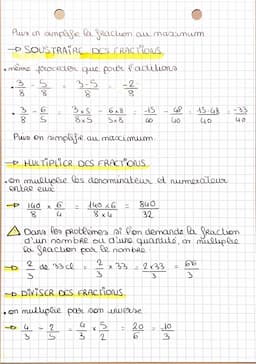 Puis on simplifie la fraction au maximum
→ SOUSTRAIRE DES FRACTIONS
• même procéder que pour l'additions
• 3/8 - 5/8 = 3-5/8 = -2/8
• 3/8 - 6/5 = 3x5/8x5 - 6x8/5x8 = 15/40 - 48/40 = 15-48/40 = -33/40
Puis on simplifie au maximum.
→ MULTIPLIER DES FRACTIONS
• on multiplie les dénominateur et numérateur
entre eux
→ 140/8 x 6/4 = 140x6/8x4 = 840/32
⚠ Dans les problèmes si l'on demande la fraction
d'un nombre ou d'une quantité, on multiplie
la fraction par le nombre
→ 2/3 de 33 cl = 2/3 x 33 = 2x33/3 = 66/3
→ DIVISER DES FRACTIONS
• on multiplie par son inverse
→ 4/3 ÷ 2/5 = 4/3 x 5/2 = 20/6 = 10/3